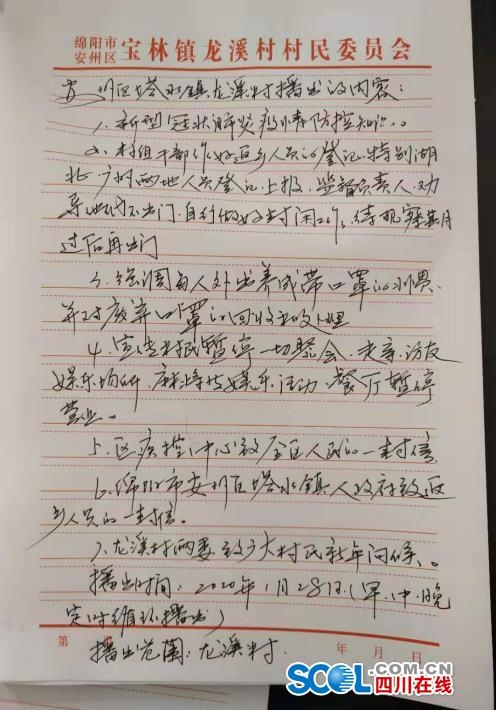 绵阳市
安州区 宝林镇龙溪村村民委员会
安州区塔水镇龙溪村播出的内容:
1、新型冠状肺炎疫情防控知识。
2、村组干部作好返乡人员的登记、特别湖
北、广州两地人员登记、上报、监督负责人、劝
导他们不出门、自行做好封闭工作、待捱寒其月
过后再出门
3、强调每人外出养成带口罩的习惯、
并对废弃口罩的回收和处理
4、宣传村民暂停一切聚会、走亲、访友
娱乐场所、麻将等娱乐活动、餐厅暂停
营业。
5、区疾控中心致全区人民的一封信
6、绵阳市安州区塔水镇人政府致返
乡人员的一封信。
7、龙溪村两委致广大村民新年问候、。
播出时间:2020年1月28日(早、中、晚
定时循环播出)
播出范围:龙溪村.
第 年 月 日
SCOL.COM.CN
四川在线